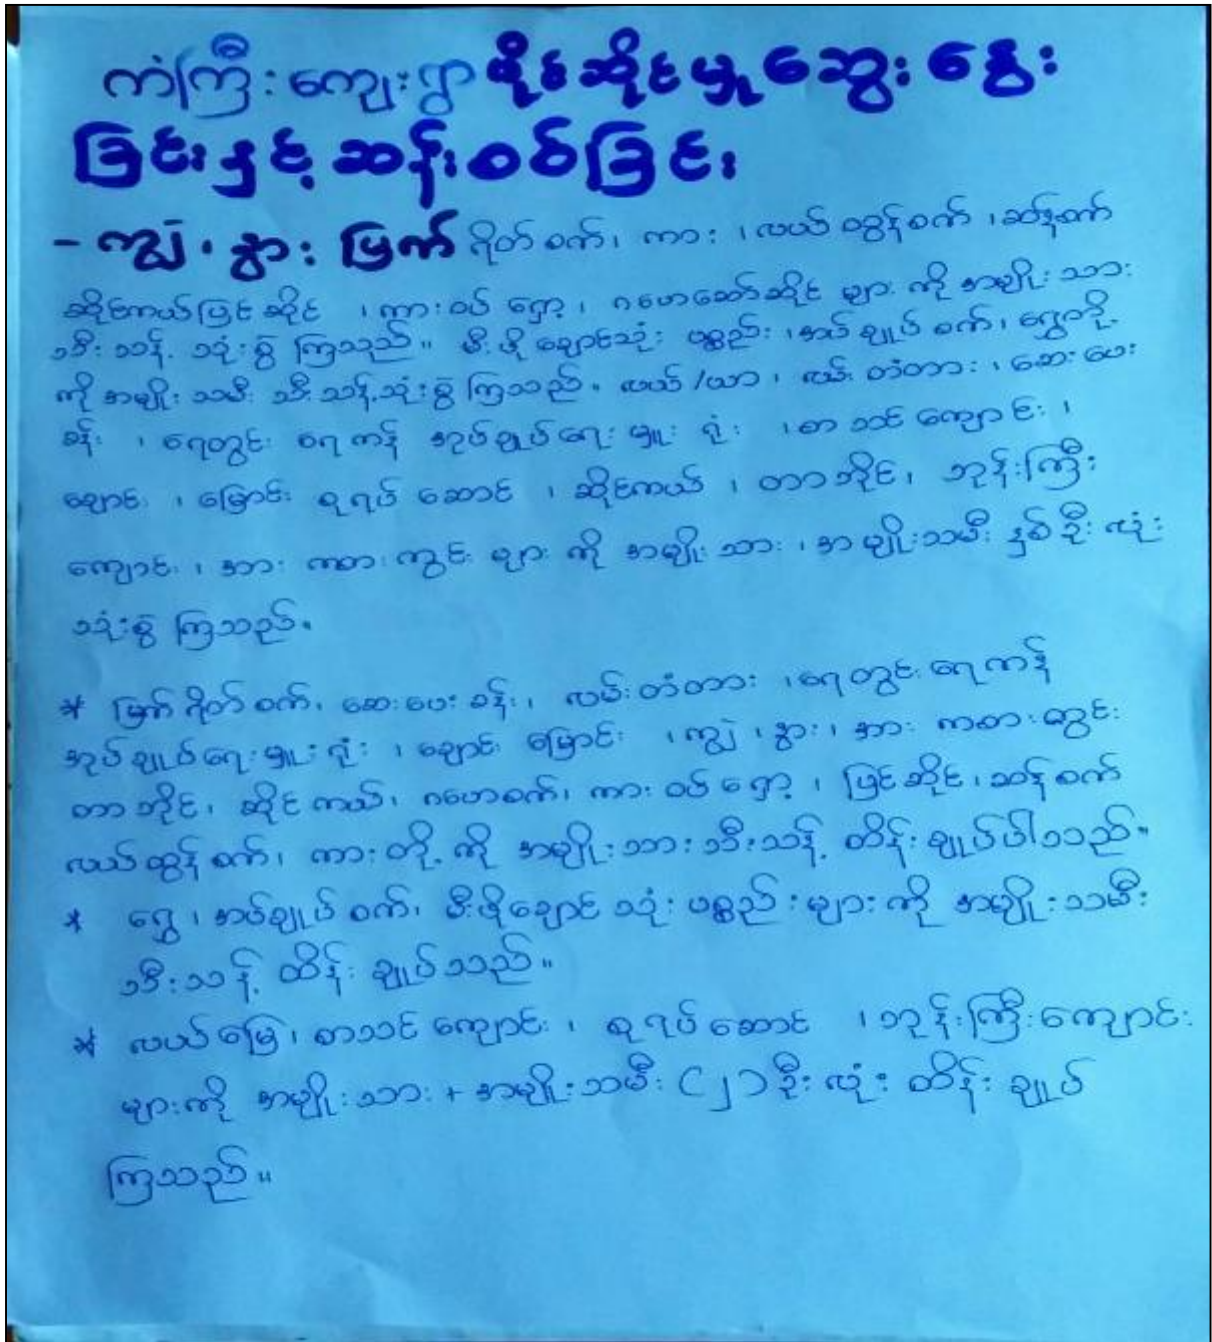 ကံကြီးကျေးရွာ ပိုင်ဆိုင်မှု ဆွေးနွေး
ခြင်းနှင့် ဆန်းစစ်ခြင်း
- ကျွဲ၊ နွား၊ မြက်ရိတ်စက်၊ ကား ၊ လယ်ထွန်စက် ၊ဆန်စက်
ဆိုင်ကယ်ပြင်ဆိုင် ၊ ကားဝပ်ရှော့ ၊ ဂဟေဆော်ဆိုင် များ ကို အမျိုးသား
သီးသန့် သုံးစွဲ ကြသည်။ မီးဖိုချောင်သုံး ပစ္စည်း ၊အပ်ချုပ်စက်၊ ရွှေတို့
ကို အမျိုးသမီး သီးသန့်သုံးစွဲ ကြသည်။ လယ်/ယာ ၊ လမ်း တံတား ၊ ဆေးပေး
ခန်း ၊ ရေတွင်း ရေကန် အုပ်ချုပ်ရေးမှူး ရုံး ၊စာသင်ကျောင်း ၊
ချောင်း ၊ မြောင်း စုရပ်ဆောင် ၊ ဆိုင်ကယ် ၊ တာဘိုင်၊ ဘုန်းကြီး
ကျောင်း ၊ အားကစားကွင်း များ ကို အမျိုးသား ၊အမျိုးသမီး နှစ်ဦးလုံး
သုံးစွဲ ကြသည်။
* မြက်ရိတ်စက်၊ ဆေးပေးခန်း၊ လမ်းတံတား ၊ရေတွင်း ရေကန်
အုပ်ချုပ်ရေးမှူးရုံး ၊ ချောင်း မြောင်း ၊ကျွဲ ၊နွား၊ အားကစားကွင်း
တာဘိုင်၊ ဆိုင်ကယ်၊ ဂဟေစက်၊ ကားဝပ်ရှော့ ၊ ပြင်ဆိုင်၊ဆန်စက်
လယ်ထွန်စက်၊ ကားတို့ ကို အမျိုးသားသီးသန့် ထိန်းချုပ်ပါသည်။
* ရွှေ ၊ အပ်ချုပ်စက်၊ မီးဖိုချောင်သုံးပစ္စည်းများကို အမျိုးသမီး
သီးသန့် ထိန်းချုပ်သည်။
* လယ်မြေ၊ စာသင်ကျောင်း ၊ စုရပ်ဆောင် ၊ဘုန်းကြီးကျောင်း
များကို အမျိုးသား + အမျိုးသမီး (၂) ဦးလုံး ထိန်းချုပ်
ကြသည်။